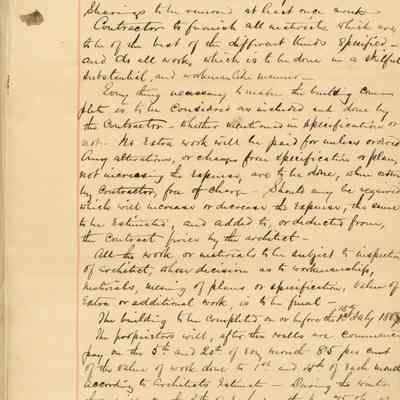 Shavings to be removed at least once week
Contractor to furnish all materials, which are
to be of the best of the different kinds specified –
and do all work, which is to be done in a skilful
substantial, and workmanlike manner –
Every thing necessary to make the building com-
plete is to be considered as included and done by
the Contractor – whether mentioned in specification or
not – No Extra work will be paid for unless ordered
Any alterations, or changes from specification or plan,
not increasing the expense, are to be done, when ordered
by contractor, free of charge – Should any be required
which will increase or decrease the expense, the same
to be Estimated, and added to, or deducted from,
the contract price by the architect –
All the work, or materials to be subject to inspection
of architect, whose decision as to workmanship,
materials, meaning of plans or specification, value of
Extra or additional work, is to be final –
The building to be completed on or before the 15th July
The proprietors will, after the walls are commenced
pay on the 5th and 20th of every month 85 per cent
of the value of work done to 1st and 15th of each month
according to Architects Estimate – During the winter